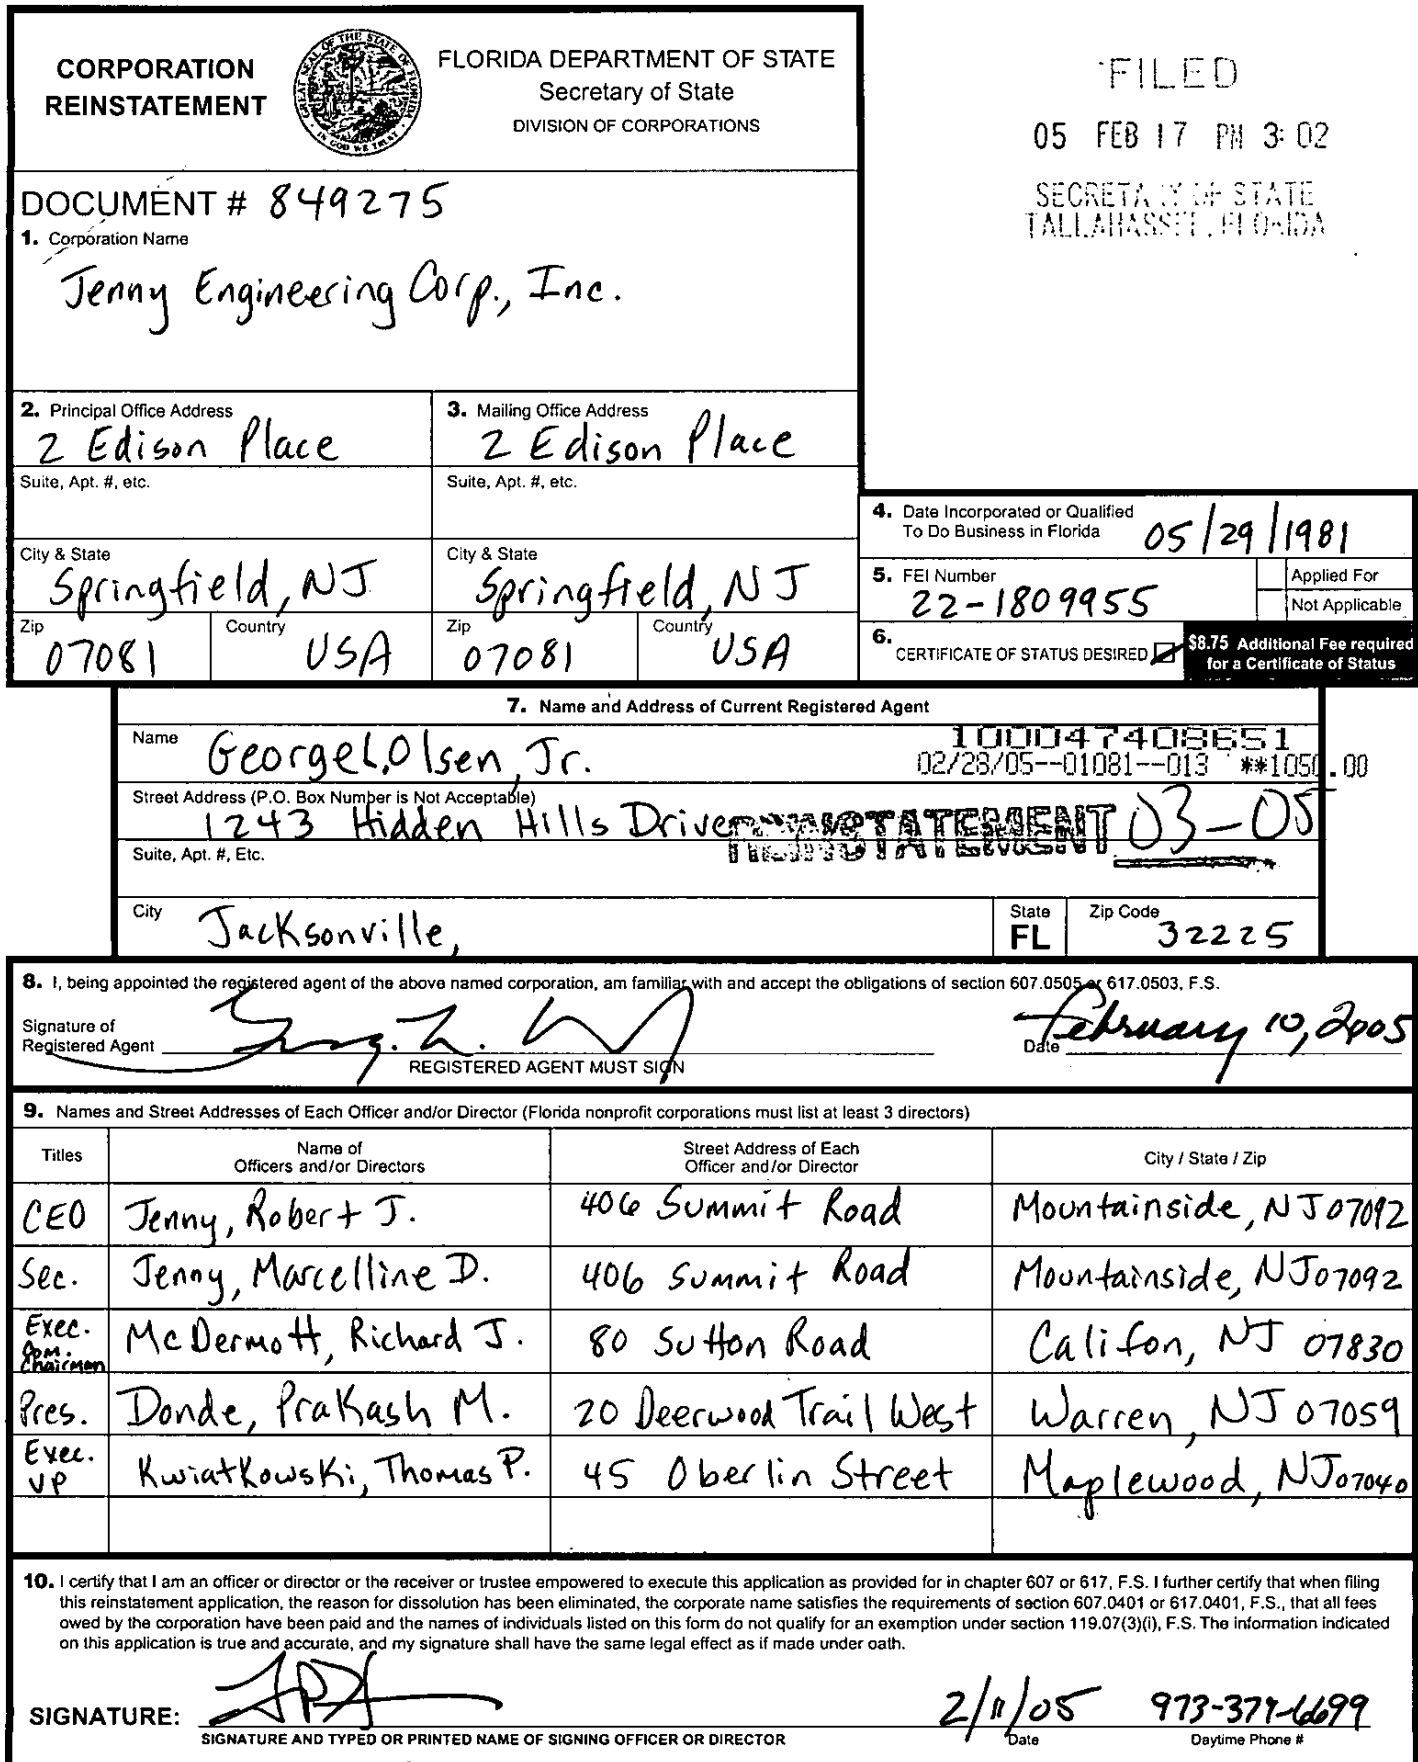 CORPORATION
REINSTATEMENT
FLORIDA DEPARTMENT OF STATE
Secretary of State
DIVISION OF CORPORATIONS
FILED
05 FEB 17 PM 3:02
SECRETARY OF STATE
TALLAHASSEE, FLORIDA
DOCUMENT # 849275
1. Corporation Name
Jenny Engineering Corp., Inc.
2. Principal Office Address
2 Edison Place
3. Mailing Office Address
2 Edison Place
Suite, Apt. #, etc.
Suite, Apt. #, etc.
City & State
Springfield, NJ
City & State
Springfield, NJ
Zip
07081
Country
USA
Zip
07081
Country
USA
4. Date Incorporated or Qualified
To Do Business in Florida
05/29/1981
5. FEI Number
22-1809955
Applied For
Not Applicable
6. CERTIFICATE OF STATUS DESIRED
$8.75 Additional Fee required
for a Certificate of Status
7. Name and Address of Current Registered Agent
Name
George L. Olsen, Jr.
100047408651
02/28/05--01081--013 **1050.00
Street Address (P.O. Box Number is Not Acceptable)
1243 Hidden Hills Drive
REINSTATEMENT 03-05
Suite, Apt. #, Etc.
City
Jacksonville,
State
FL
Zip Code
32225
8. I, being appointed the registered agent of the above named corporation, am familiar with and accept the obligations of section 607.0505 or 617.0503, F.S.
Signature of
Registered Agent
REGISTERED AGENT MUST SIGN
Date
February 10, 2005
9. Names and Street Addresses of Each Officer and/or Director (Florida nonprofit corporations must list at least 3 directors)
Titles
Name of
Officers and/or Directors
Street Address of Each
Officer and/or Director
City / State / Zip
CEO Jenny, Robert J. 406 Summit Road Mountainside, NJ 07092
Sec. Jenny, Marcelline D. 406 Summit Road Mountainside, NJ 07092
Exec. Com. Chairman McDermott, Richard J. 80 Sutton Road Califon, NJ 07830
Pres. Donde, Prakash M. 20 Deerwood Trail West Warren, NJ 07059
Exec. VP Kwiatkowski, Thomas P. 45 Oberlin Street Maplewood, NJ 07040
10. I certify that I am an officer or director or the receiver or trustee empowered to execute this application as provided for in chapter 607 or 617, F.S. I further certify that when filing
this reinstatement application, the reason for dissolution has been eliminated, the corporate name satisfies the requirements of section 607.0401 or 617.0401, F.S., that all fees
owed by the corporation have been paid and the names of individuals listed on this form do not qualify for an exemption under section 119.07(3)(i), F.S. The information indicated
on this application is true and accurate, and my signature shall have the same legal effect as if made under oath.
SIGNATURE:
SIGNATURE AND TYPED OR PRINTED NAME OF SIGNING OFFICER OR DIRECTOR
2/11/05
Date
973-379-6699
Daytime Phone #